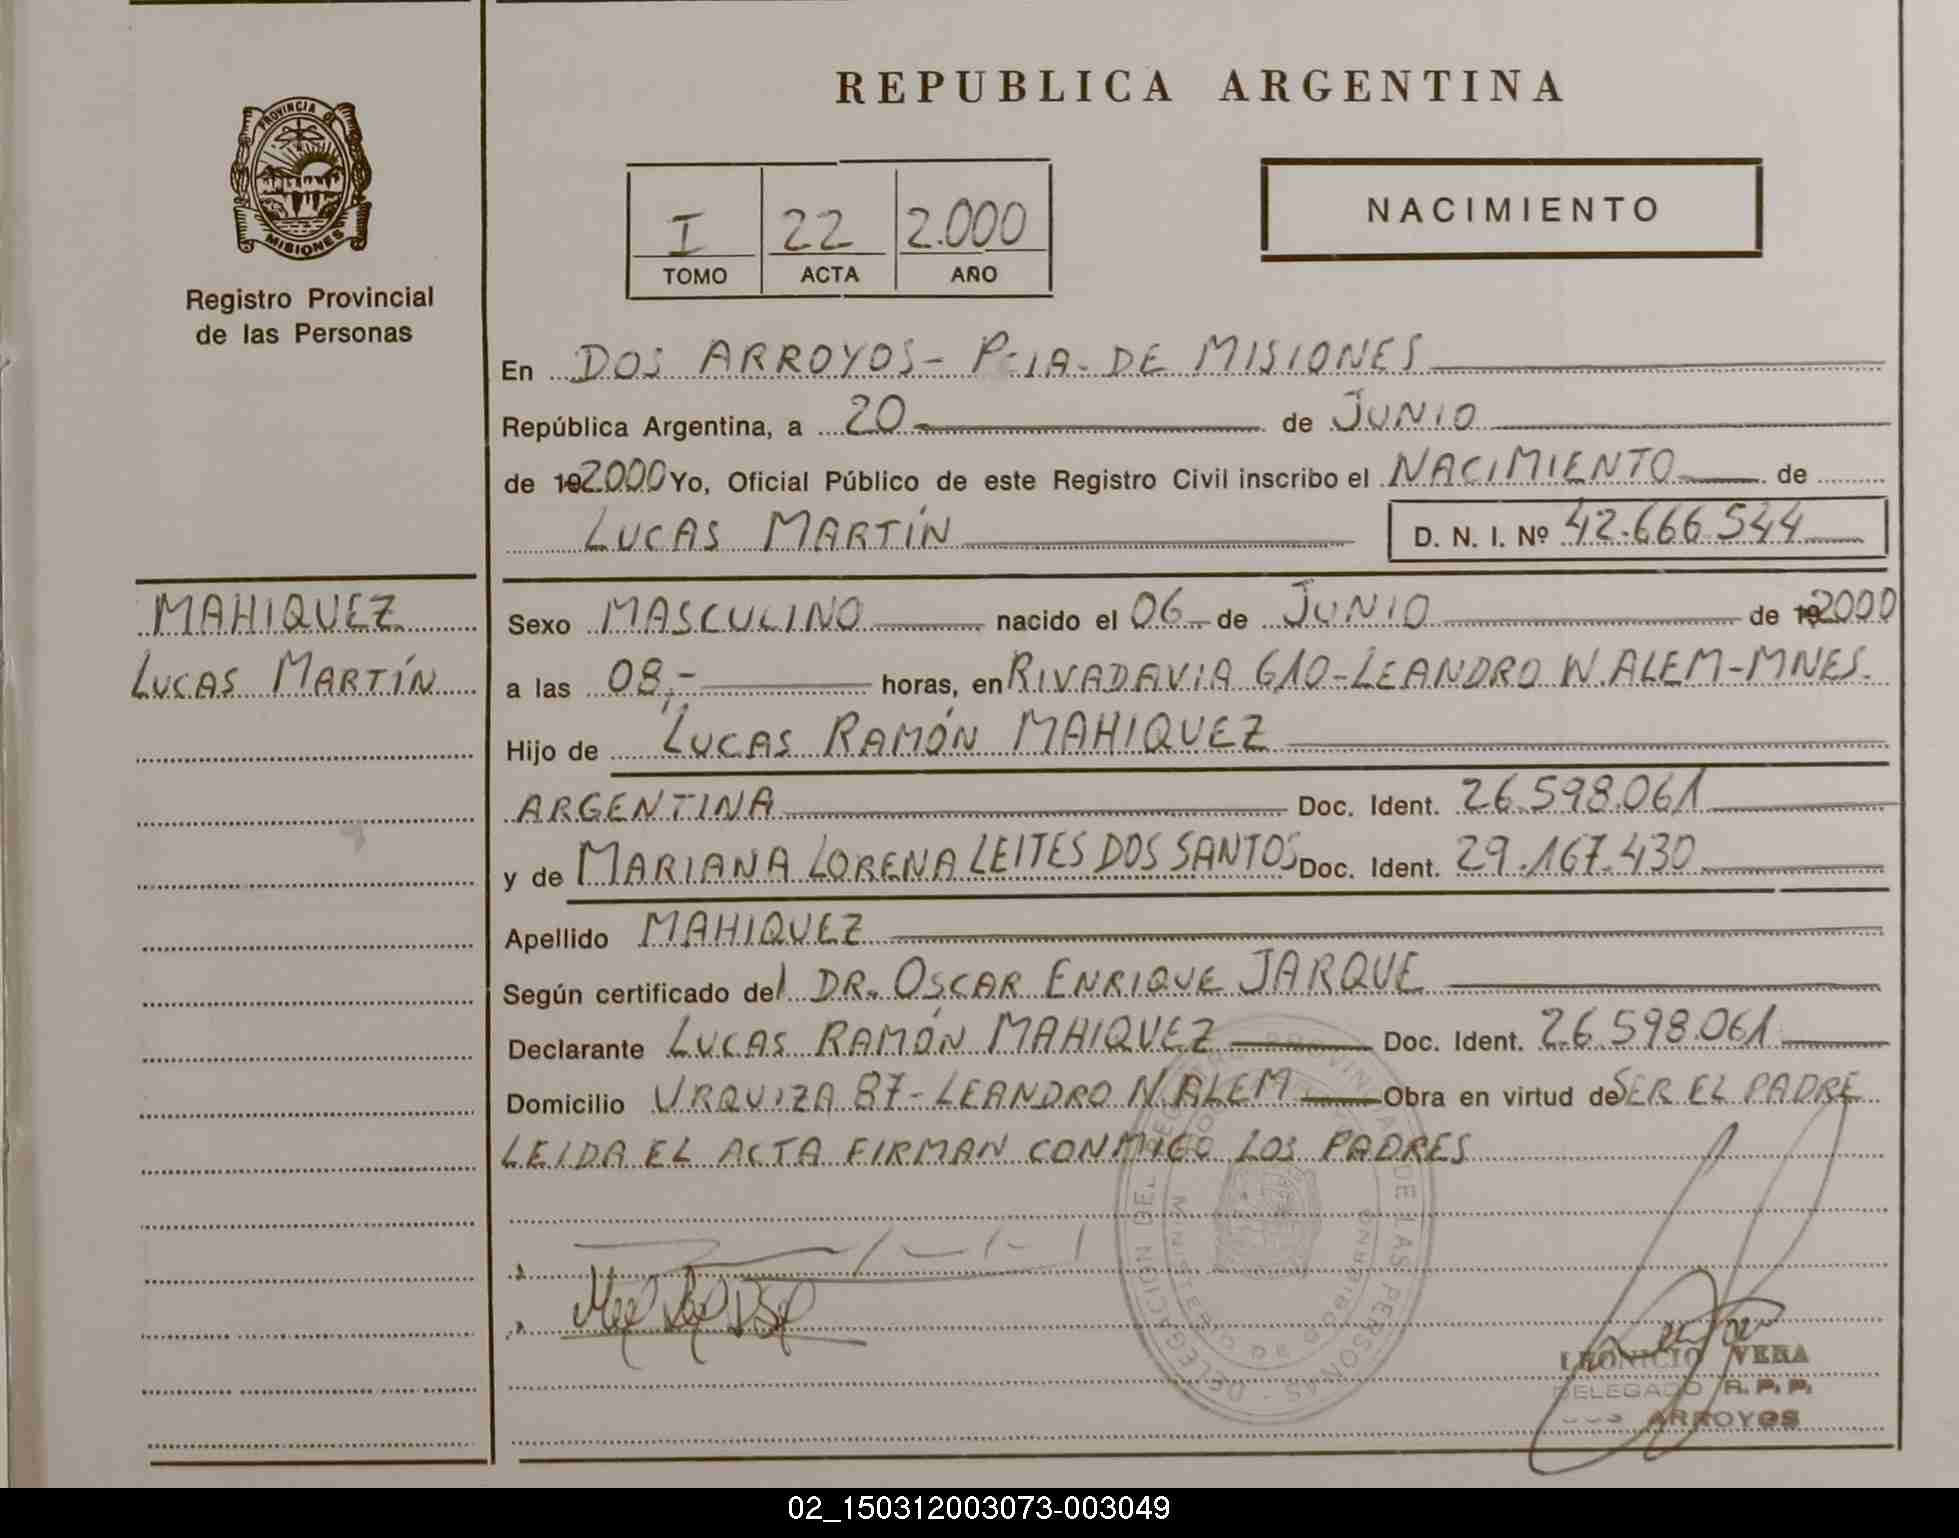 REPUBLICA ARGENTINA
PROVINCIA DE
MISIONES
Registro Provincial
de las Personas
I 22 2.000
TOMO ACTA AÑO
NACIMIENTO
En DOS ARROYOS- PCIA- DE MISIONES
República Argentina, a 20 de JUNIO
de 192000 Yo, Oficial Público de este Registro Civil inscribo el NACIMIENTO de
LUCAS MARTÍN D. N. I. Nº 42.666.544
MAHIQUEZ
LUCAS MARTÍN
Sexo MASCULINO nacido el 06 de JUNIO de 192000
a las 08,- horas, en RIVADAVIA 610-LEANDRO N.ALEM-MNES.
Hijo de LUCAS RAMÓN MAHIQUEZ
ARGENTINA Doc. Ident. 26.598.061
y de MARIANA LORENA LEITES DOS SANTOS Doc. Ident. 29.167.430
Apellido MAHIQUEZ
Según certificado del DR. OSCAR ENRIQUE JARQUE
Declarante LUCAS RAMÓN MAHIQUEZ Doc. Ident. 26.598.061
Domicilio URQUIZA 87- LEANDRO N.ALEM Obra en virtud de SER EL PADRE
LEIDA EL ACTA FIRMAN CONMIGO LOS PADRES
DELEGACION DEL REGISTRO PROVINCIAL DE LAS PERSONAS
MINISTERIO DE GOBIERNO
LEONICIO VERA
DELEGADO R. P. P.
DOS ARROYOS
02_150312003073-003049